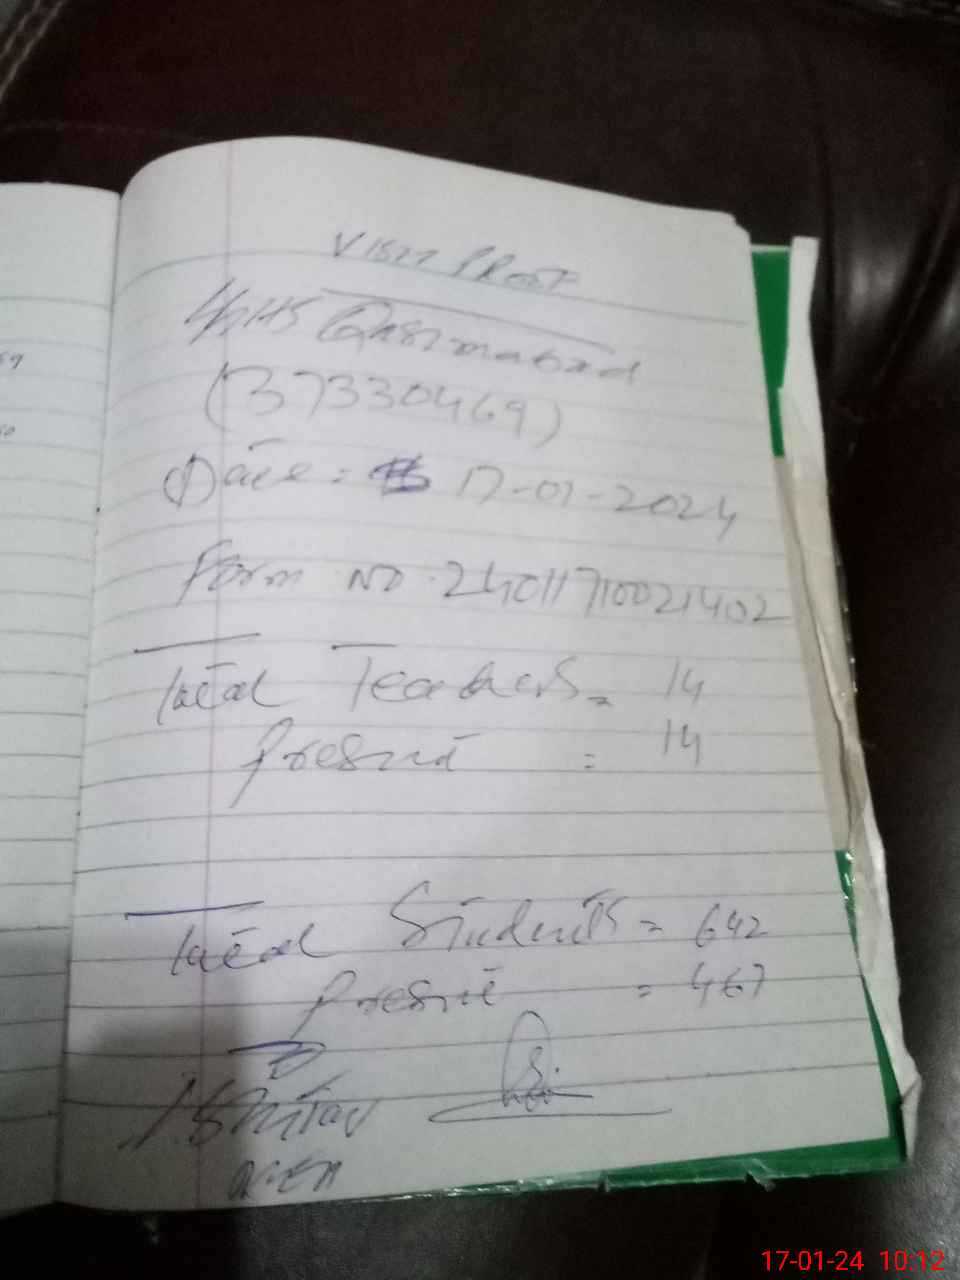 VISIT PROOF
GGHS Qasimabad
(37330469)
Date = 17-01-2024
Form NO. 24011710021402
Total Teachers = 14
Present = 14
Total Students = 642
Present = 467
17-01-24 10:12